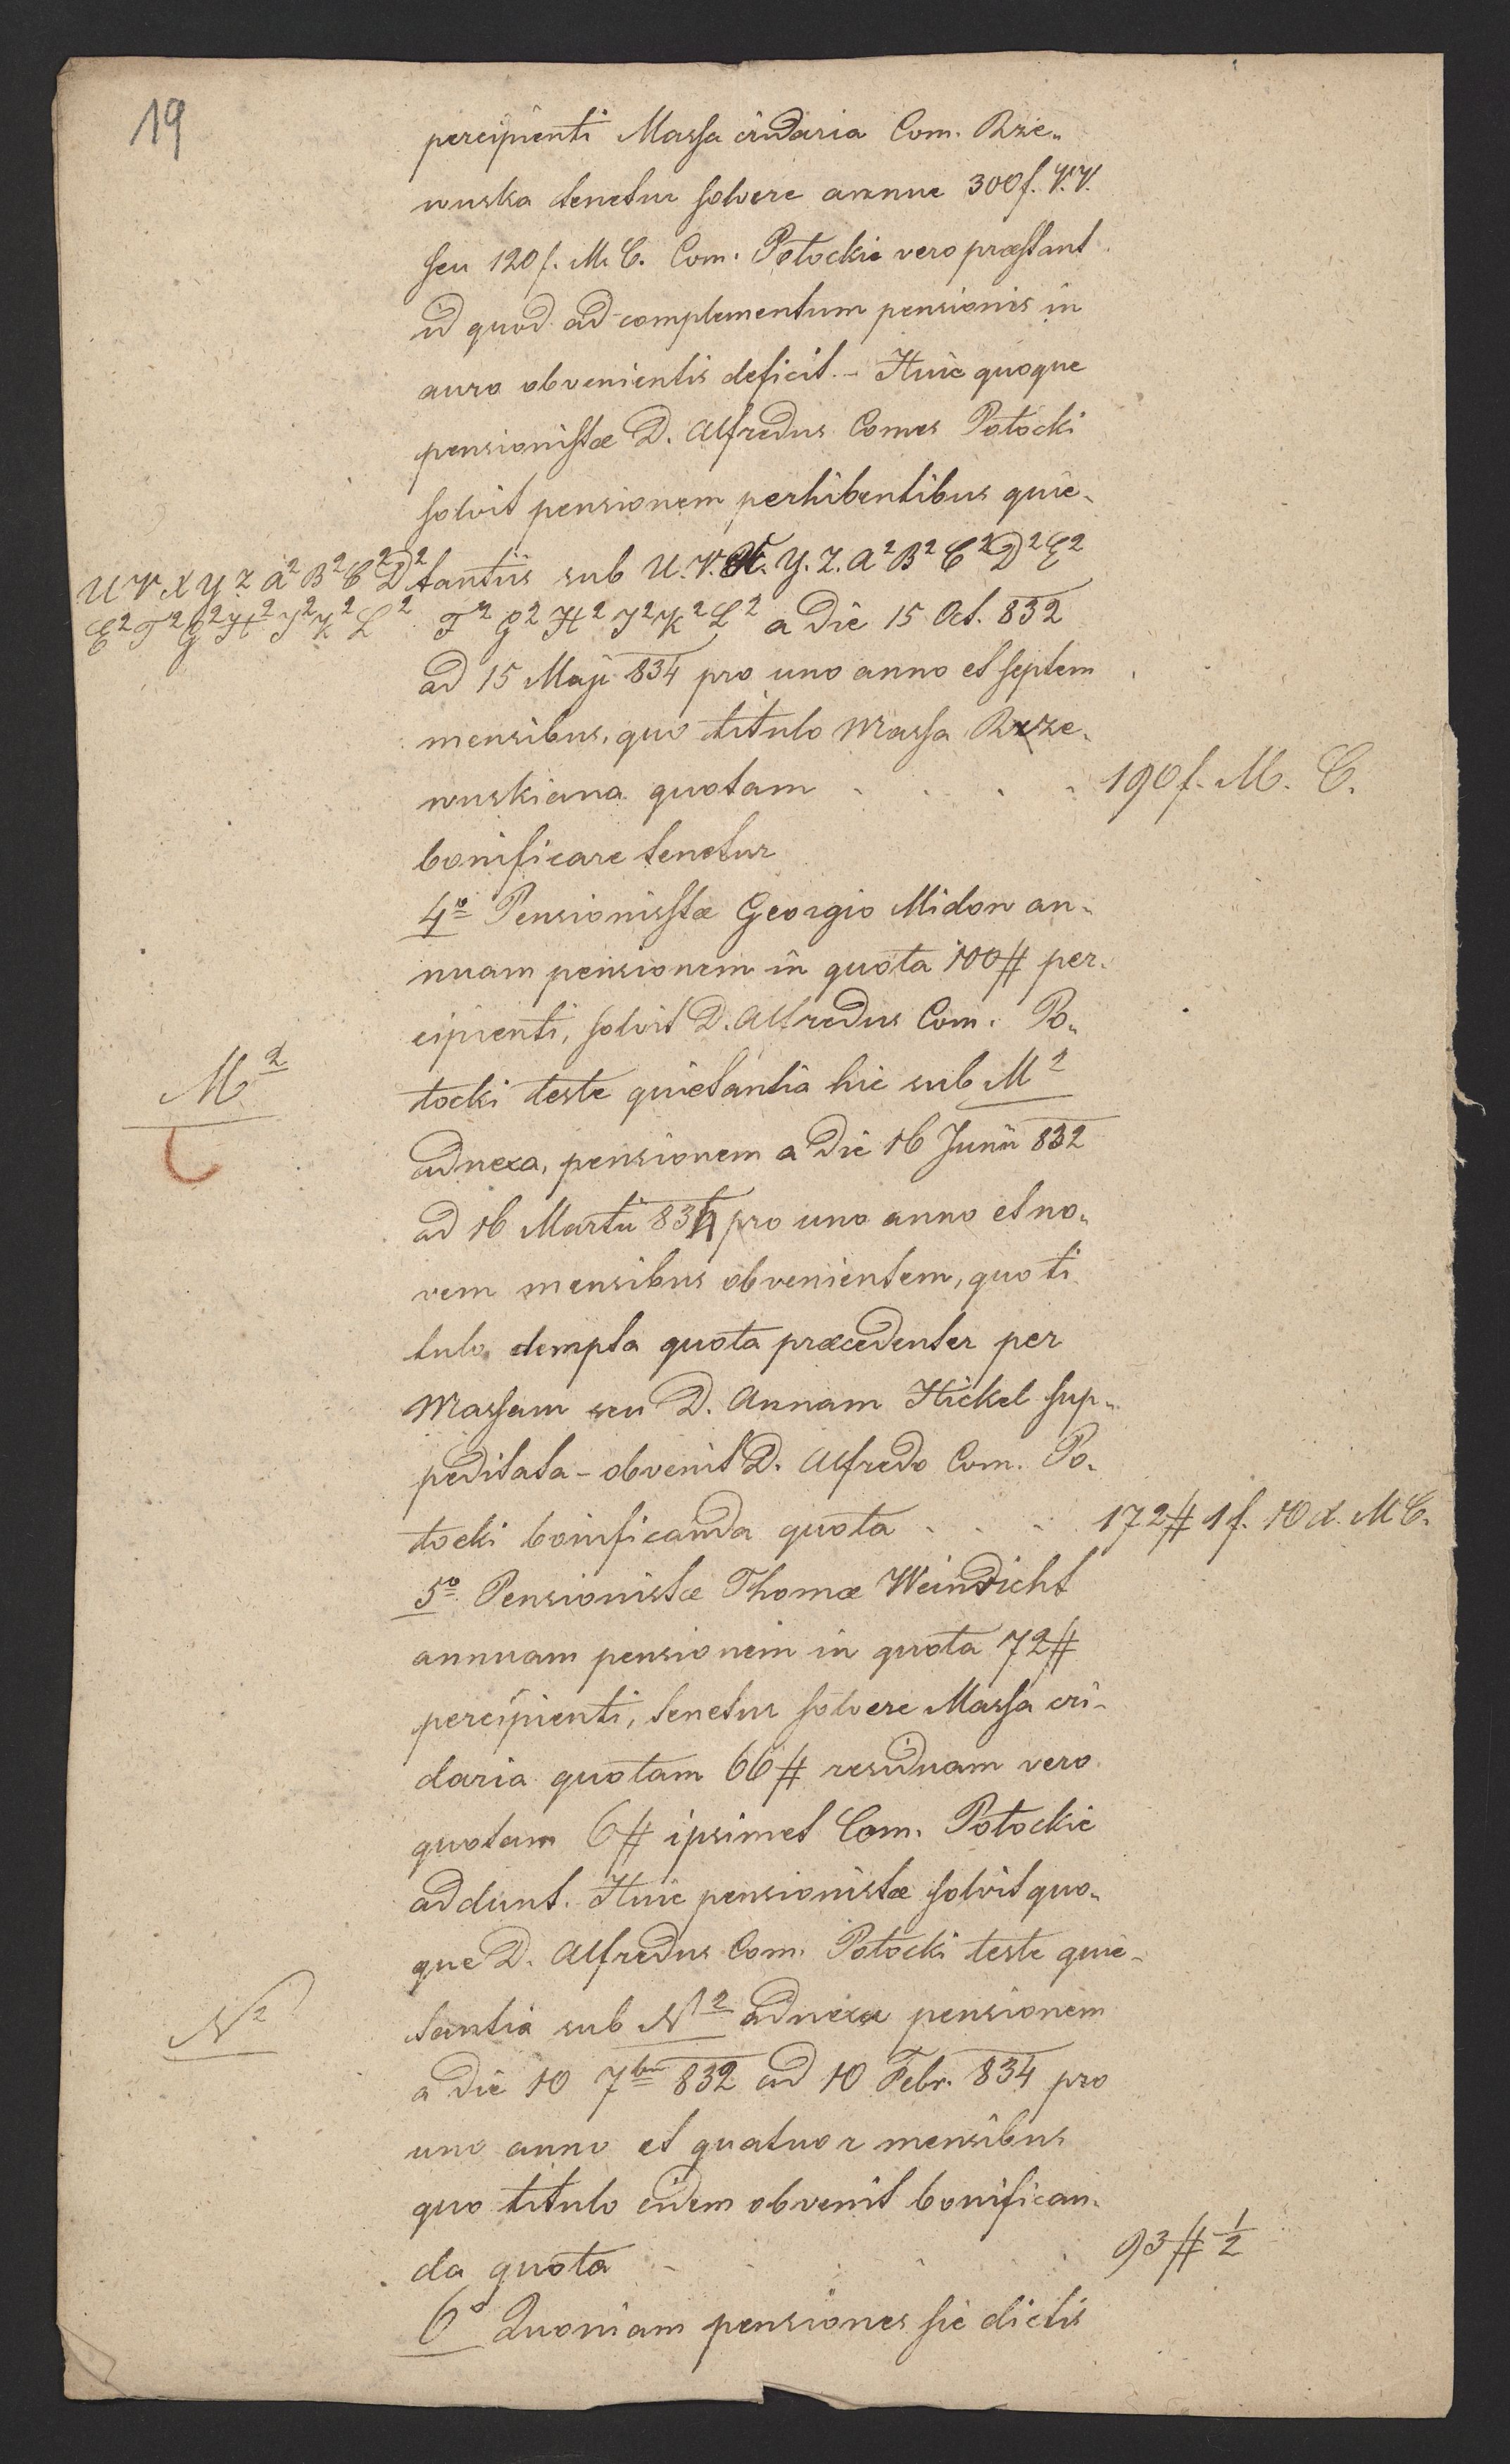 19
percipienti Massa cridaria Com. Rze„
wuska tenetur solvere annue 300 f. V.V.
seu 120 f. M. C. Com. Potockie vero præstant
id quod ad complementum pensionis in
auro obvenientis deficit. – Huic quoque
pensionistæ D. Alfredus Comes Potocki
solvit pensionem perhibentibus quie„
U V X Y Z A² B² C² D² tantiis sub U. V. X. Y. Z. A² B² C² D² E²
E² F² G² H² I² K² L² F² G² H² I² K² L² a die 15 Oct. 832
ad 15 Maji 834 pro uno anno et septem
mensibus, quo titulo Massa Rzze„
wuskiana quotam . . . . 190 f. M. C.
bonificare tenetur
4º Pensionisstæ Georgio Midon an„
nuam pensionem in quota 100 # per„
cipienti, solvit D. Alfredus Com. Po„
M² tocki teste quietantia hic sub M²
adnexa, pensionem a die 16 Junii 832
ad 16 Martii 834 pro uno anno et no„
vem mensibus obvenientem, quo ti
tulo dempta quota præcedenter per
Massam seu D. Annam Hickel sup„
peditata – obvenit D. Alfredo Com. Po„
tocki bonificanda quota . . . 172 # 1 f. 10 x. M C.
5º Pensionistæ Thomæ Weindicht
annuam pensionem in quota 72 #
percipienti, tenetur solvere Massa cri„
daria quotam 66 # residuam vero
quotam 6 # ipsimet Com. Potockie
addunt. Huic pensionistæ solvit quo„
que D. Alfredus Com. Potocki teste quie„
N² tantia sub N² adnexa pensionem
a die 10 7br 832 ad 10 Febr. 834 pro
uno anno et quatuor mensibus
quo titulo eidem obvenit bonifican„
da quota . . . . 93 # ½
6º Quoniam pensiones sic dictis